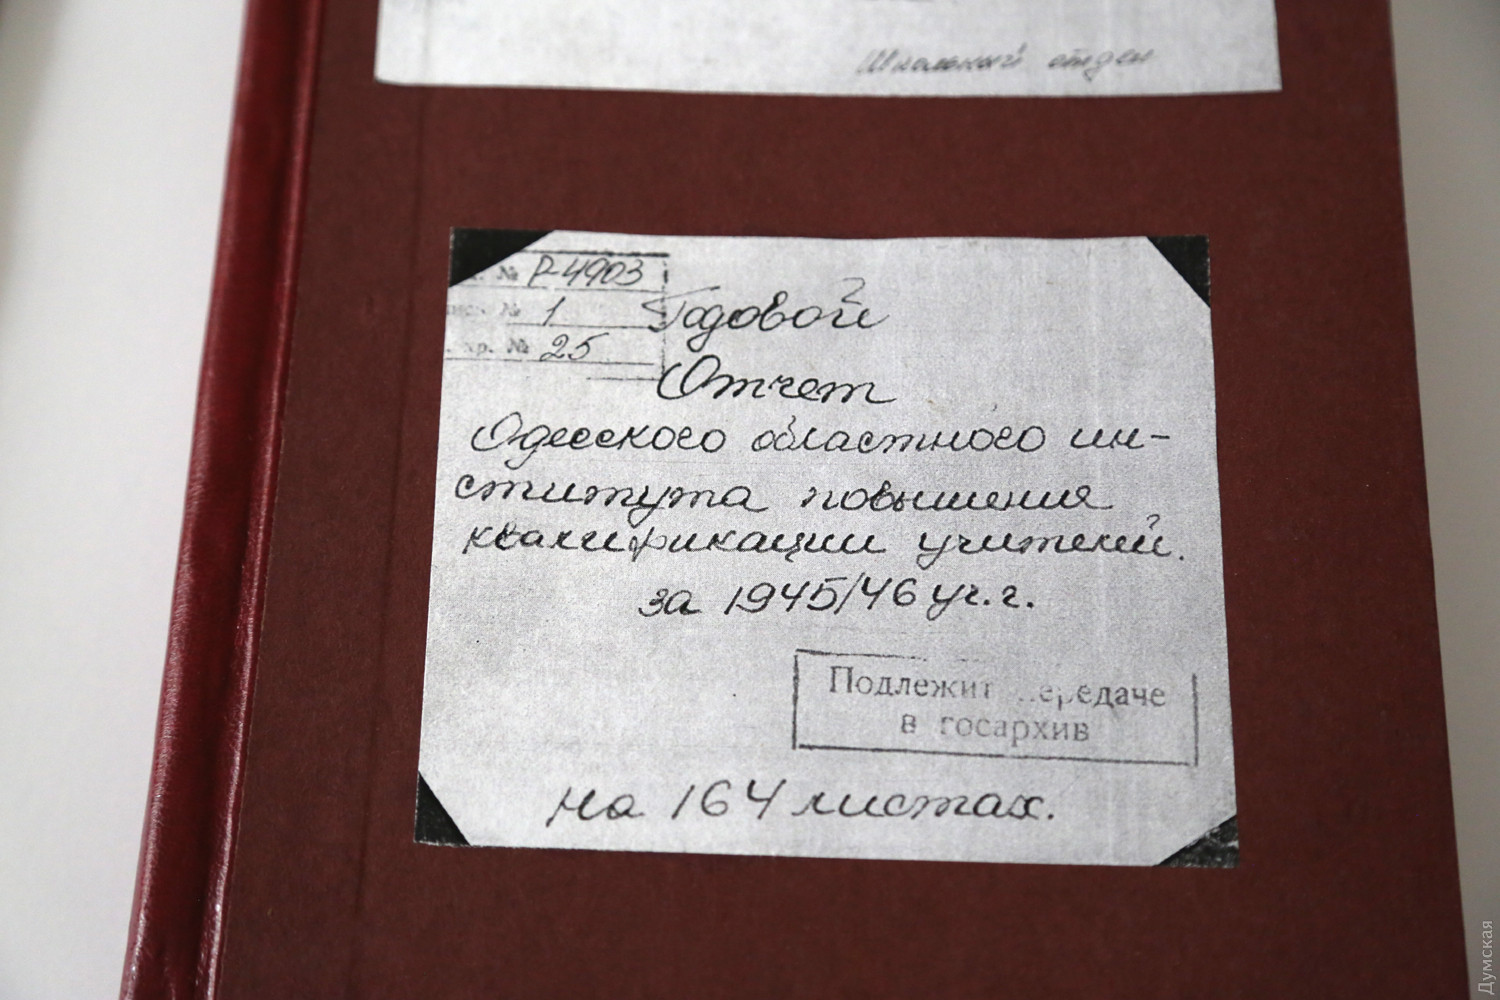 Школьный отдел
№ Р-4903
№ 1
хр. № 25
Годовой
Отчет
Одесского областного ин-
ститута повышения
квалификации учителей.
за 1945/46 уч. г.
Подлежит передаче
в госархив
на 164 листах.
Думская